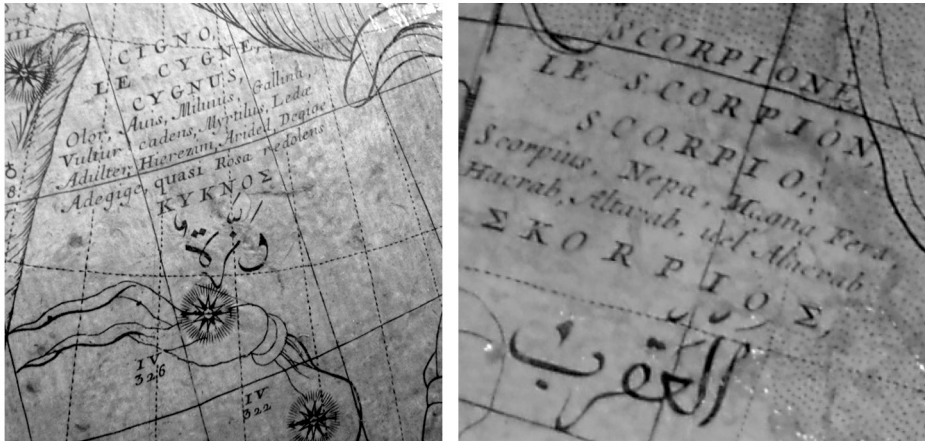 III
CIGNO,
LE CYGNE,
CYGNUS,
Olor, Auis, Miluuis, Gallina,
Vultur cadens, Myrtilus, Ledæ
Adulter, Hierezim, Degige
Adegige, quasi Rosa redolens
KYKNOΣ
IV
326
IV
322
SCORPIONE
LE SCORPION,
SCORPIO,
Scorpius, Nepa, Magna Fera
Hacrab, Altarab, uel Alacrab
ΣKORPIOΣ,
العقرب